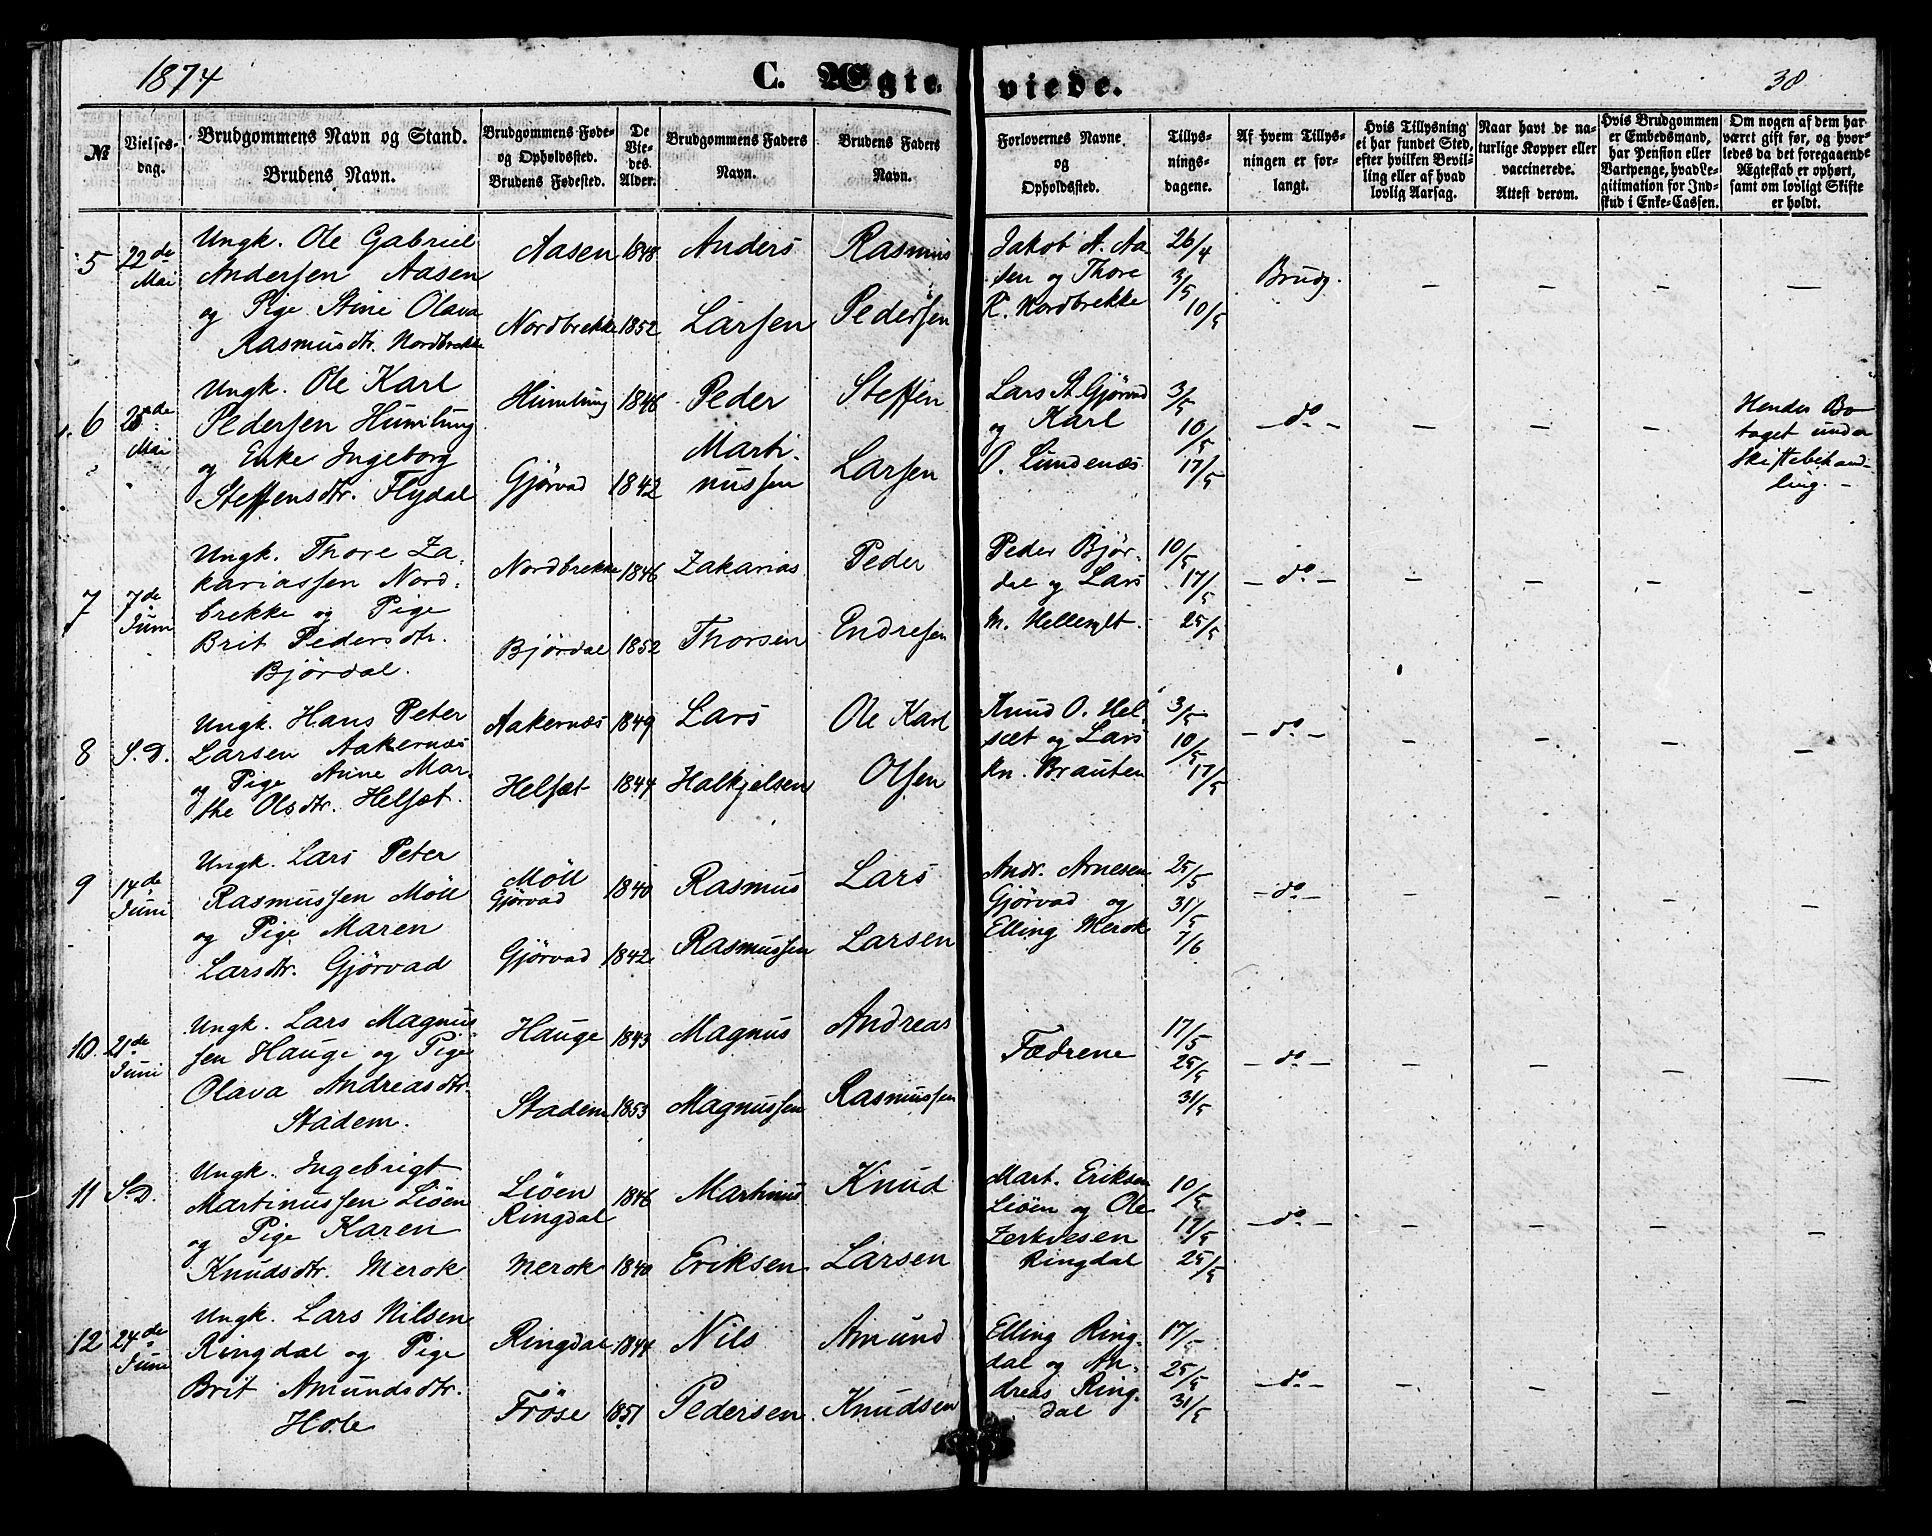 1874
C. Ægteviede.
38
№
Vielses-
dag.
Brudgommens Navn og Stand.
Brudens Navn.
Brudgommens Føde-
og Opholdssted.
Brudens Fødested.
De
Vie-
des
Alder.
Brudgommens Faders
Navn.
Brudens Faders
Navn.
Forlovernes Navne
og
Opholdssted.
Tillys-
nings-
dagene.
Af hvem Tillys-
ningen er for-
langt.
Hvis Tillysning
ei har fundet Sted,
efter hvilken Bevil-
ling eller af hvad
lovlig Aarsag.
Naar havt de na-
turlige Kopper eller
vaccinerede.
Attest derom.
Hvis Brudgommen
er Embedsmand,
har Pension eller
Vartpenge, hvad Le-
gitimation for Ind-
skud i Enke-Cassen.
Om nogen af dem har
været gift før, og hvor-
ledes da det foregaaende
Ægteskab er ophørt,
samt om lovligt Skifte
er holdt.
5
22de
Mai
Ungk. Ole Gabriel
Andersen Aasen
og Pige Stine Olava
Rasmusdtr. Nordbrekke
Aasen
Nordbrekke
1848
1852
Anders
Larsen
Rasmus
Pedersen
Jakob A. Aa-
sen og Thore
R. Nordbrekke
26/4
3/5
10/5
Brudg.
– – – –
6
28de
Mai
Ungk. Ole Karl
Pedersen Humlung
og Enke Ingeborg
Steffensdtr. Flydal
Humlung
Gjørvad
1846
1842
Peder
Marti-
nussen
Steffen
Larsen
Lars St. Gjørvad
og Karl
O. Lundenæs
3/5
10/5
17/5
– do –
– – –
Hendes Bo
taget under
Skiftebehand-
ling. –
7
7de
Juni
Ungk. Thore Za-
kariassen Nord-
brekke og Pige
Brit Pedersdtr.
Bjørdal.
Nordbrekke
Bjørdal
1846
1852
Zakarias
Thorsen
Peder
Endresen
Peder Bjør-
dal og Lars
M. Hellesylt.
10/5
17/5
25/5
– do –
– – – –
8
S.D.
Ungk. Hans Peter
Larsen Aakernæs
og Pige Anne Mar-
the Olsdtr. Helsæt.
Aakernæs
Helsæt
1849
1844
Lars
Halkjelsen
Ole Karl
Olsen
Knud O. Hel-
sæt og Lars
Kn. Brauten
3/5
10/5
17/5
– do –
– – – –
9
14de
Juni
Ungk. Lars Peter
Rasmussen Möll
og Pige Maren
Larsdtr. Gjörvad
Möll
Gjörvad
Gjørvad
1840
1842
Rasmus
Rasmussen
Lars
Larsen
Andr. Arnesen
Gjörvad og
Elling Merok
25/5
31/5
7/6
– do –
– – – –
10.
21de
Juni
Ungk. Lars Magnus-
sen Hauge og Pige
Olava Andreasdtr.
Stadem.
Hauge
Stadem
1843
1853
Magnus
Magnussen
Andreas
Rasmussen
Fædrene
17/5
25/5
31/5
– do –
– – – –
11
S.D.
Ungk. Ingebrigt
Martinussen Liöen
og Pige Karen
Knudsdtr. Merok
Liöen
Ringdal
Merok
1846
1840
Martinus
Eriksen
Knud
Larsen
Mart. Eriksen
Liöen og Ole
Ringdal
10/5
17/5
25/5
– do –
– – – –
12
24de
Juni
Ungk. Lars Nilsen
Ringdal og Pige
Brit Amundsdtr.
Hole
Ringdal
Fröse
1844
1851
Nils
Pedersen
Amund
Knudsen
Elling Ring-
dal og An-
dreas Ring-
dal
17/5
25/5
31/5
– do –
– – – –